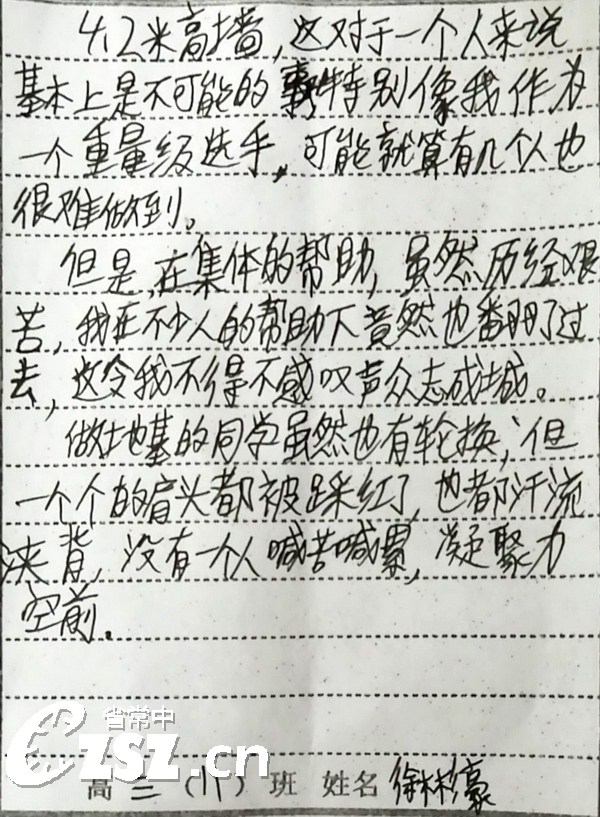 4.2米高墙，这对于一个人来说
基本上是不可能的事特别像我作为
一个重量级选手，可能就算有几个人也
很难做到。
但是，在集体的帮助，虽然历经艰
苦，我在不少人的帮助下竟然也翻了过
去，这令我不得不感叹声众志成城。
做地基的同学虽然也有轮换，但
一个个的肩头都被踩红了，也都汗流
浃背，没有一个人喊苦喊累，凝聚力
空前。
省常中
CZSZ.cn
高三（11）班 姓名 徐林豪